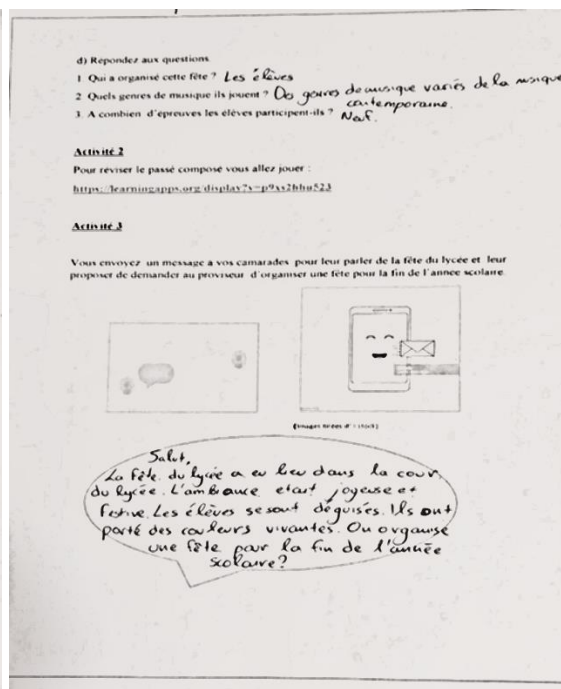 d) Répondez aux questions.
1 Qui a organisé cette fête ? Les élèves
2 Quels genres de musique ils jouent ? Des genres de musique variés de la musique
contemporaine.
3. A combien d'épreuves les élèves participent-ils ? Neuf.
Activité 2
Pour réviser le passé composé vous allez jouer :
https://learningapps.org/display?v=p9xs2hhu523
Activité 3
Vous envoyez un message à vos camarades pour leur parler de la fête du lycée et leur
proposer de demander au proviseur d'organiser une fête pour la fin de l'année scolaire.
Salut,
La fête du lycée a eu lieu dans la cour
du lycée. L'ambiance etait joyeuse et
festive. Les élèves se sont déguisés. Ils ont
porté des couleurs vivantes. On organise
une fête pour la fin de l'année
scolaire?